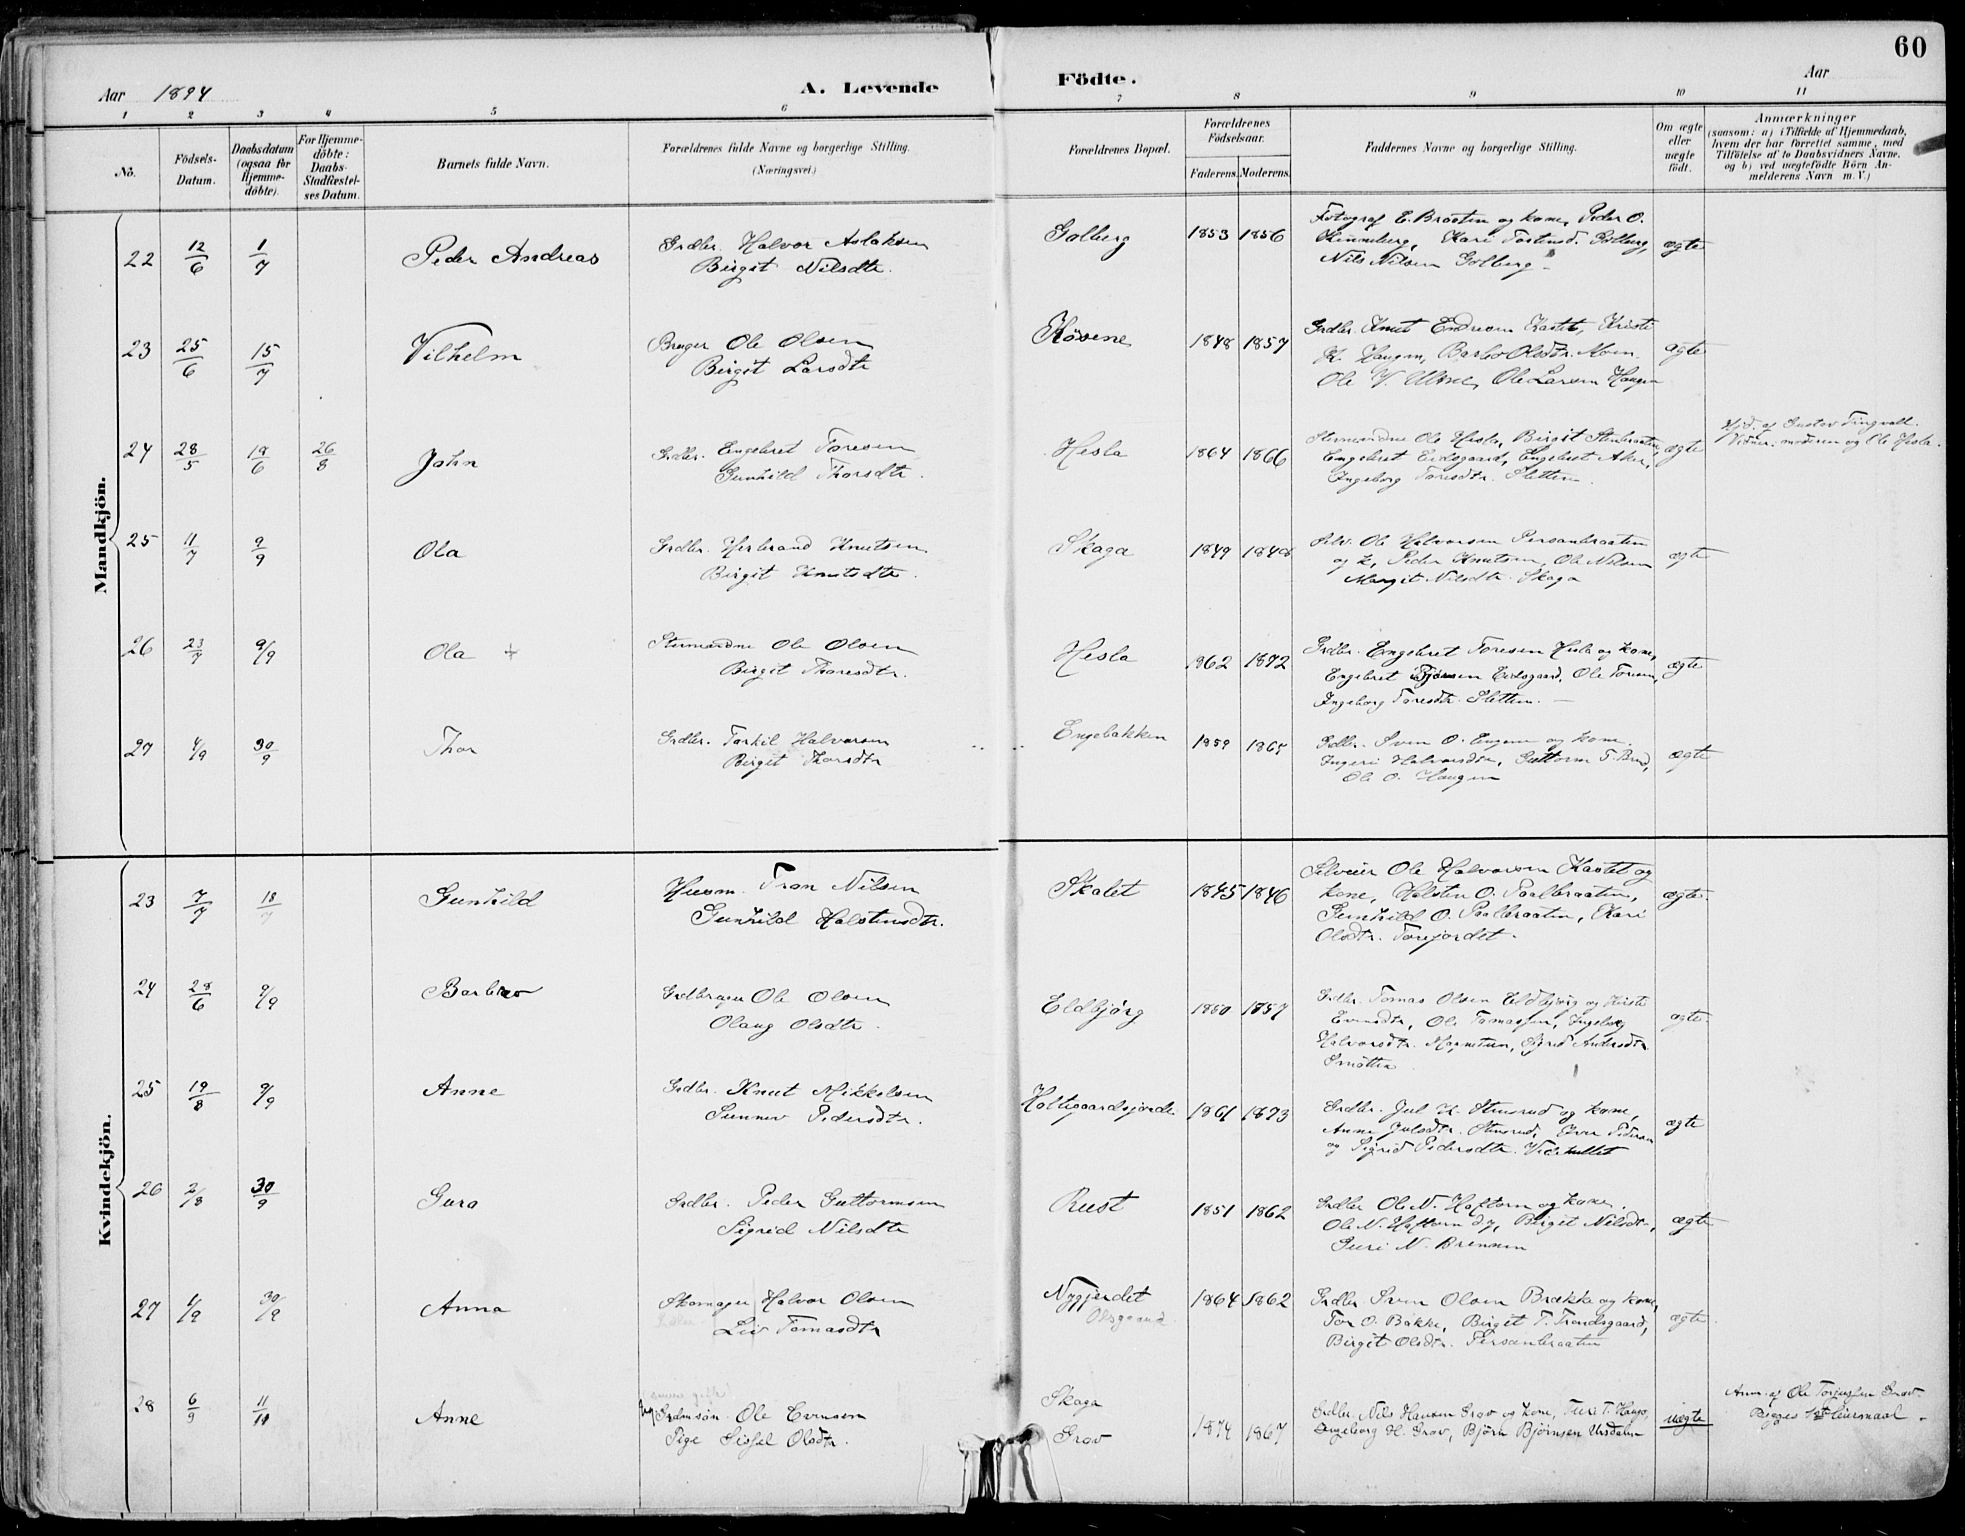 60
Aar 1894 A. Levende Födte. Aar
1 2 3 4 5 6 7 8 9 10 11
No.
Födsels-
Datum.
Daabsdatum
(ogsaa for
Hjemme-
döbte).
For Hjemme-
döbte:
Daabs-
Stadfæstel-
ses Datum.
Barnets fulde Navn.
Forældrenes fulde Navne og borgerlige Stilling.
(Næringsvei.)
Forældrenes Bopæl.
Forældrenes
Födselsaar.
Faderens. Moderens.
Faddernes Navne og borgerlige Stilling.
Om ægte
eller
uægte
födt.
Anmærkninger
(saasom: a) i Tilfælde af Hjemmedaab,
hvem der har forrettet samme, med
Tilföielse af to Daabsvidners Navne,
og b) ved uægtefödte Börn An-
melderens Navn m. V.)
Mandkjön.
22 12/6 1/7 Peder Andreas
Grdbr. Halvor Aslaksen
Birgit Nilsdtr.
Golberg 1853 1856
Fotograf E. Braaten og kone, Peder O.
Kari Torstensd. Golberg,
Nils Nilsen Golberg
ægte
23 25/6 15/7 Vilhelm
Bruger Ole Olsen
Birgit Larsdtr
1848 1857
Grdbr. Knut Endresen Kastet, Kristi
K. Haugen, Barbro Olsdtr. Moen
Ole Larsen Haugen
ægte
24 28/5 26/8 John
Grdbr. Engebret Toresen
Gunhild Thorsdtr.
Hesla 1864 1866
Ole Hesla, Birgit
Engebret Eidsgaard, Engebret Aker,
Ingeborg Toresdtr. Sletten.
ægte
Hjd. af Gustav Tingvall.
Vidner: moderen og Ole Hesla.
25 11/7 9/9 Ola
Grdbr. Herbrand Knutsen
Birgit Knutsdtr.
Skaga 1849 1848
Selv. Ole Halvorsen Persanbraaten
og k, Peder Knutsen, Ole Nilsen
Margit Nilsdtr. Skaga
ægte
26 23/7 9/9 Ola +
Stuemandne Ole Olsen
Birgit Thoresdtr.
Hesla 1862 1872
Grdbr. Engebret Toresen Hesla og kone,
Engebret Eidsgaard, Ole Toresen,
Ingeborg Toresdtr. Sletten.
ægte
27 4/9 30/9 Thor
Grdbr. Torkil Halvorsen
Birgit Thorsdtr
Engebakken 1859 1865
Grdbr. Sven O. Engene og kone.
Ingeri Halvorsdtr, Guttorm T.
Ole O. Haugen
ægte
Kvindekjön.
23 7/7 18/7 Gunhild
Husm. Tron Nilsen
Gunhild Halstensdtr.
Skalet 1845 1846
Selveier Ole Halvorsen Kastet og
kone, Halsten O. Paalbraaten,
Gunhild O. Paalbraaten, Kari
Olsdtr. Torejordet.
ægte.
24 28/6 9/9 Barbro
Grdbruger Ole Olsen
Olaug Olsdtr.
Eldbjørg 1850 1857
Grdbr. Tomas Olsen Eldbjørg og Kirsti
Evensdtr, Ole Tomassen, Ingeborg
Halvorsdtr. Sigrid Andersdtr.
ægte.
25 19/8 9/9 Anne
Grdbr. Knut Mikkelsen
Sunnev Pedersdtr.
Holtegaardsjorde 1861 1873
Grdbr. Jul K. Stensrud og kone,
Anne Julsdtr. Stensrud, Iver Pedersen
og Sigrid Pedersdtr.
ægte
26 2/8 30/9 Guro
Grdbr. Peder Guttormsen
Sigrid Nilsdtr
Rust 1851 1862
Grdbr Ole N. Hoftun og kone.
Ole N. Hoftun d.y, Birgit Nilsdtr,
Guri N. Brennen
ægte
27 4/9 30/9 Anna
Skomager Halvor Olsen
Liv Tomasdtr
Nygjerdet
Olsgaard
1864 1862
Grdbr. Sven Olsen Brække og kone,
Tor O. Bakke, Birgit T. Trondsgaard,
Birgit Olsdtr. Persanbraaten
ægte
28 6/9 11/11 Anne
Grdmsøn. Ole Evensen
Pige Sissel Olsdtr.
Skaga
Grøv
1874 1867
Grdbr. Nils Hansen Grøv og kone, Turi T. Haugo,
Ingeborg H. Grøv, Bjørn Bjørnsen Ursdalen
uægte
Anm. af Ole Torgussen Grøv.
Begges 1ste leiermaal.